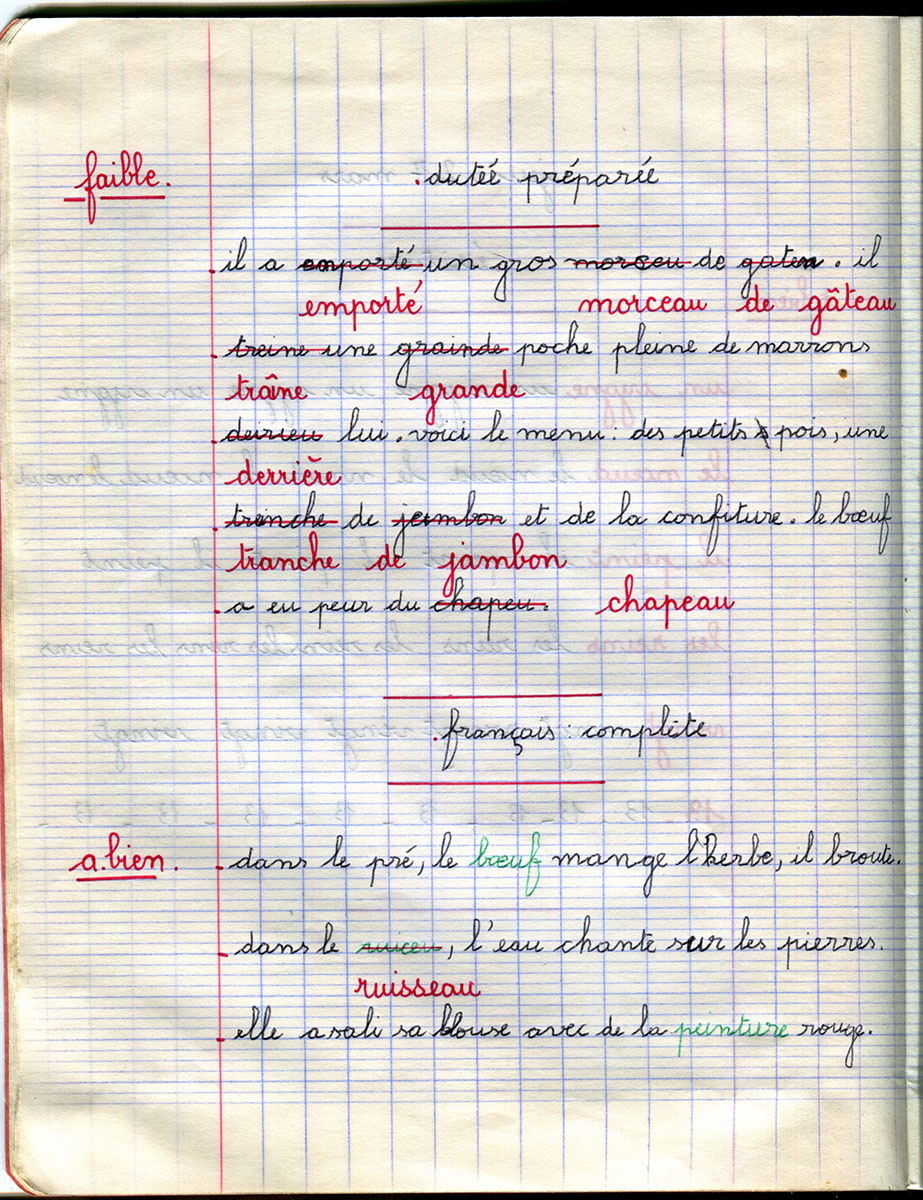 faible. . dutée préparée
il a enporté un gros morceu de gateu. il
emporté morceau de gâteau
treine une grainde poche pleine de marrons
traîne grande
deirieu lui. voici le menu: des petits pois, une
derrière
trenche de jembon et de la confiture. le bœuf
tranche de jambon
a eu peur du chapeu. chapeau
. français: complète
a.bien. dans le pré, le bœuf mange l'herbe, il broute.
dans le ruiceu, l'eau chante sur les pierres.
ruisseau
elle a sali sa blouse avec de la peinture rouge.